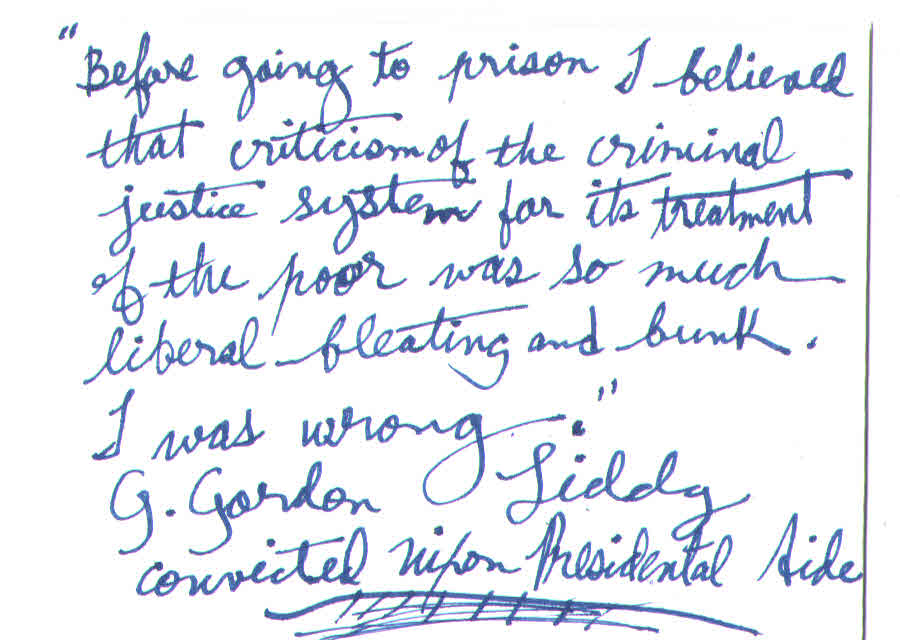 "Before going to prison I believed
that criticism of the criminal
justice system for its treatment
of the poor was so much
liberal bleating and bunk.
I was wrong."
G. Gordon Liddy
convicted nipon Presidental Aide